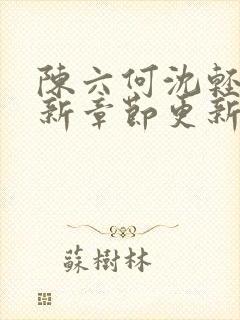 陳六何沈輕
新章節更新
蘇樹林